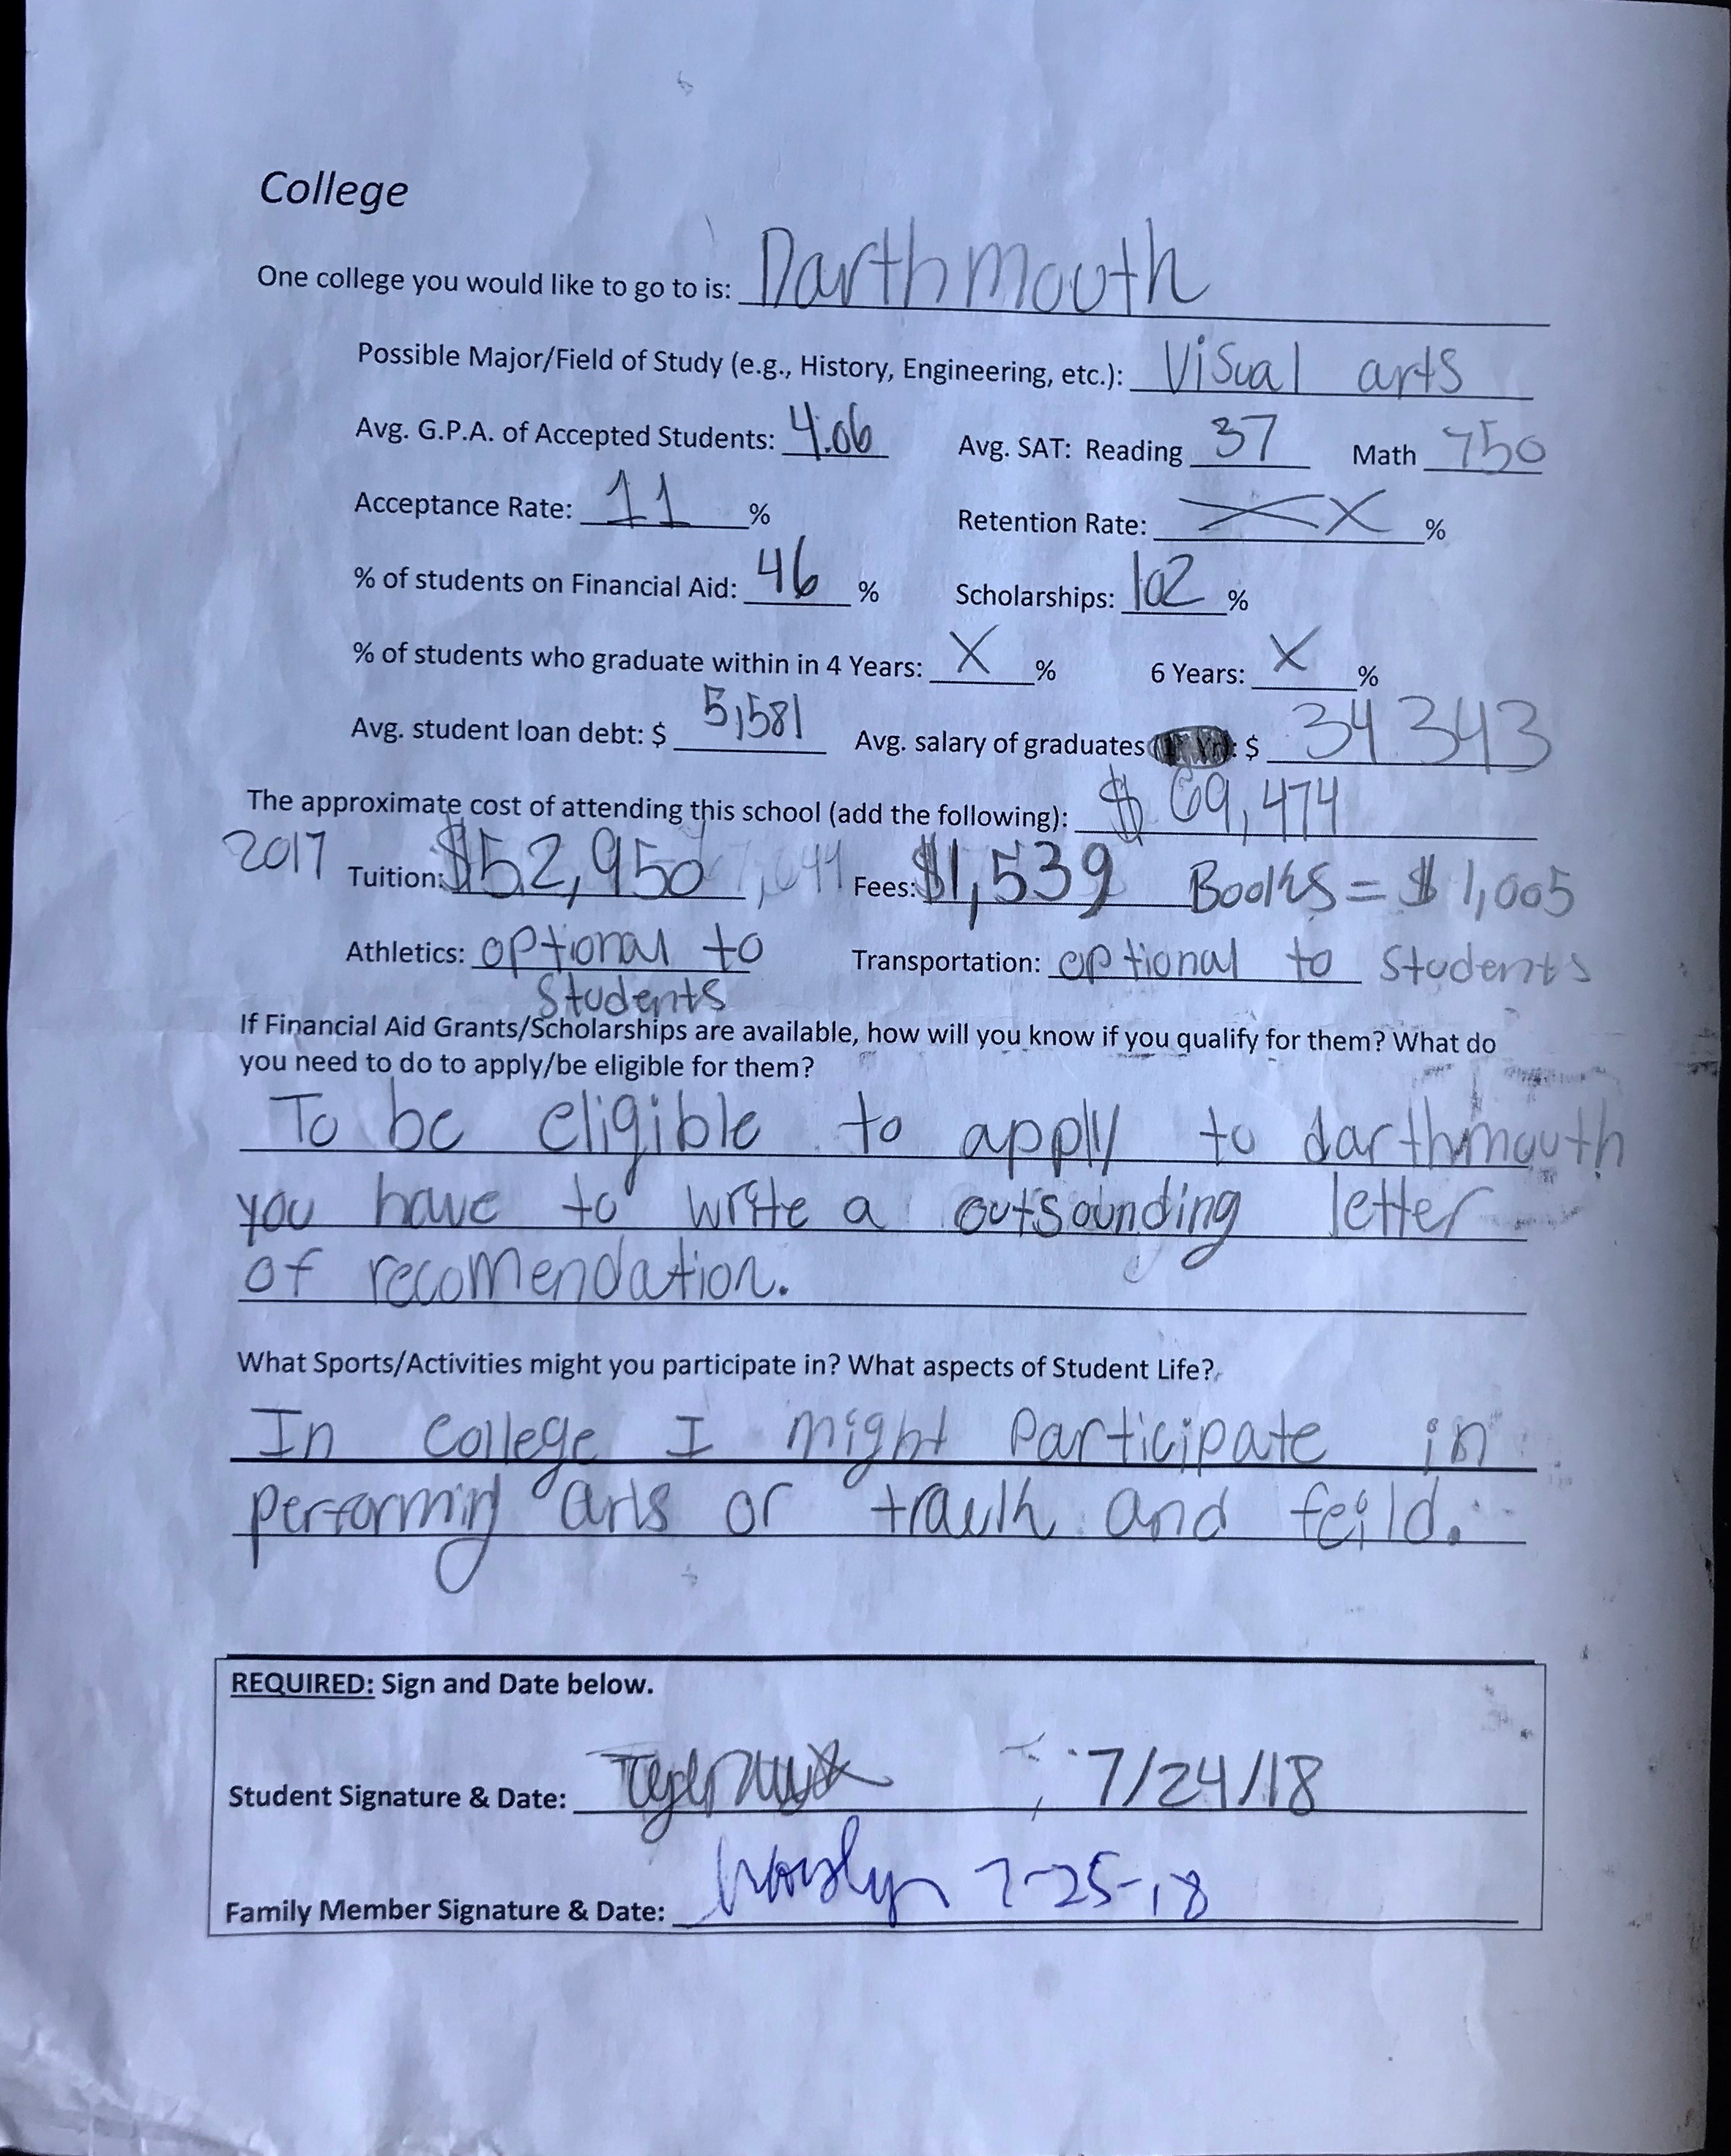 College
One college you would like to go to is: Darthmouth
Possible Major/Field of Study (e.g., History, Engineering, etc.): Visual arts
Avg. G.P.A. of Accepted Students: 4.06 Avg. SAT: Reading 37 Math 750
Acceptance Rate: 11 % Retention Rate: X %
% of students on Financial Aid: 46 % Scholarships: 102 %
% of students who graduate within in 4 Years: X % 6 Years: X %
Avg. student loan debt: $ 5,581 Avg. salary of graduates : $ 34 343
The approximate cost of attending this school (add the following): $ 69,474
2017 Tuition: $52,950 Fees: $1,539 Books = $ 1,005
Athletics: optional to Transportation: optional to students
students
If Financial Aid Grants/Scholarships are available, how will you know if you qualify for them? What do
you need to do to apply/be eligible for them?
To be eligible to apply to darthmouth
you have to write a outsounding letter
of recomendation.
What Sports/Activities might you participate in? What aspects of Student Life?
In college I might participate in
performing arts or trackh and feild.
REQUIRED: Sign and Date below.
Student Signature & Date: 7/24/18
Family Member Signature & Date: 7-25-18